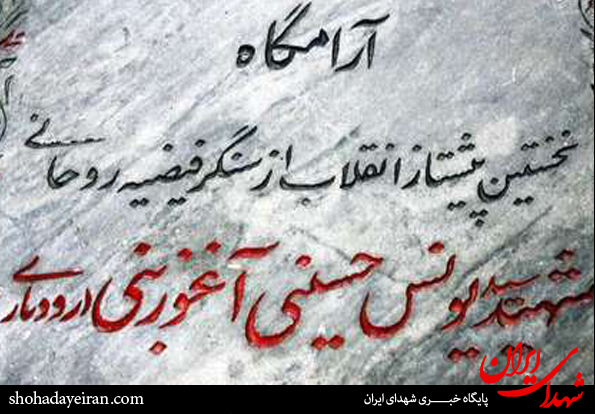 آرامگاه
نخستین پیشتاز انقلاب از سنگر فیضیه روحانی
شهید سید یونس حسینی آغوزبنی (رودباری
شهدای ایران
پایگاه خبری شهدای ایران
shohadayeiran.com